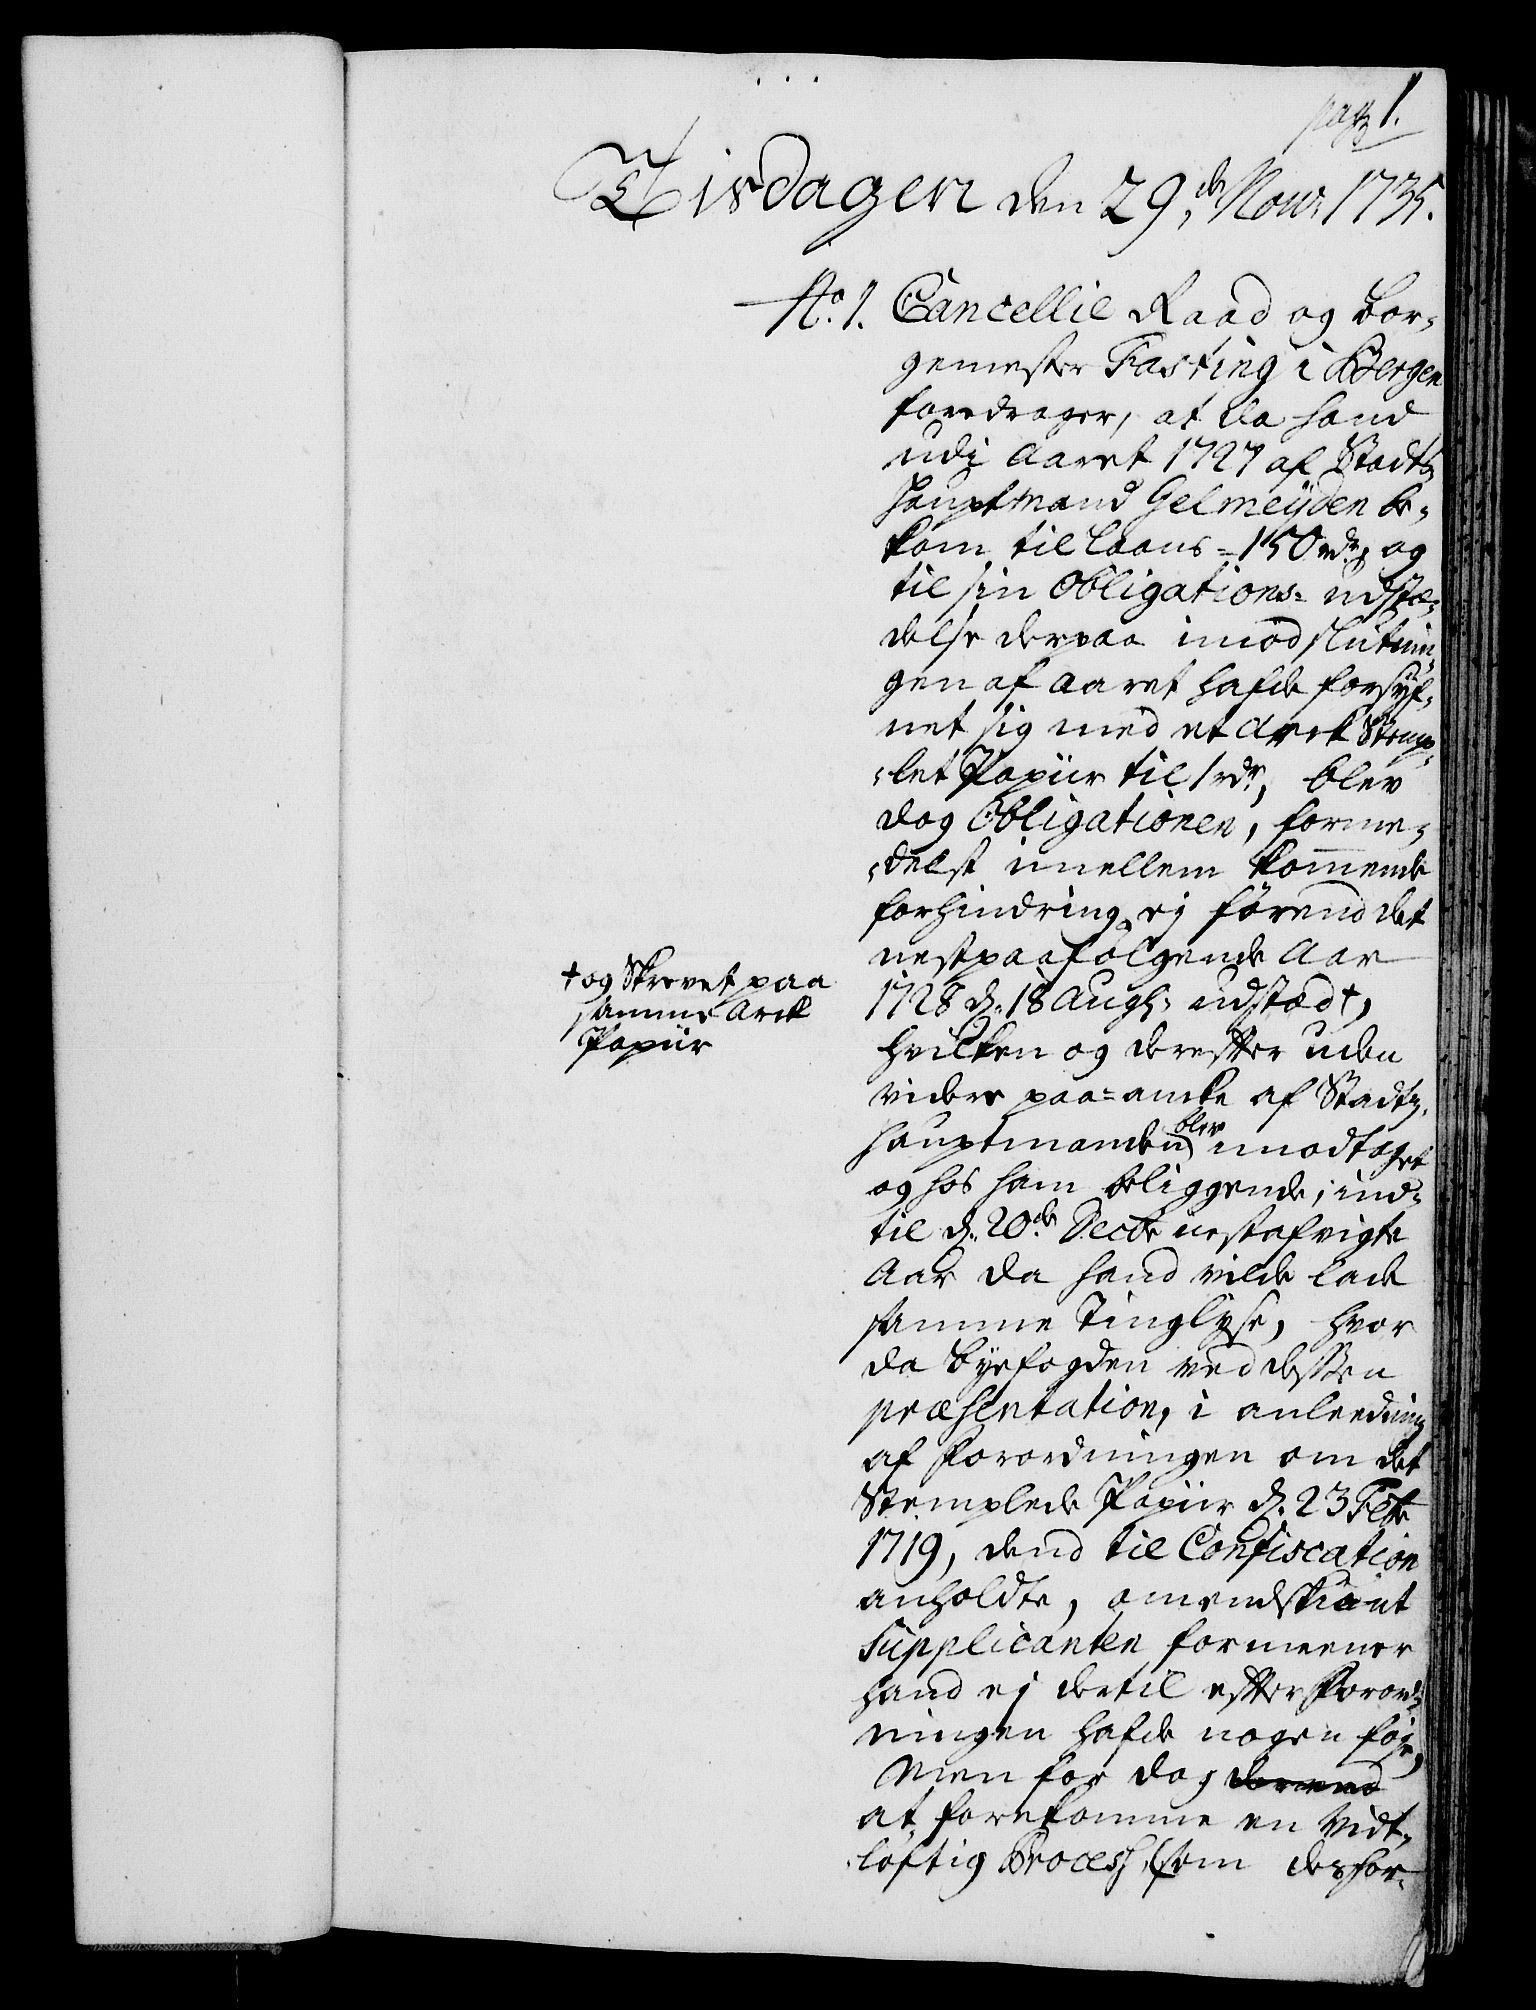 pag 1.
Tisdagen den 29de Nov: 1735.
No. 1. Cancellie Raad og Bor-
gemester Fasting i Bergen
foredrager, at da hand
udi Aaret 1727 af Stadtz
Hauptmand Gelmeyden be-
kom til Laans = 150 rdr, og
til sin Obligations= udstæ-
delse derpaa imod slutnin-
gen af Aaret hafde forsyf-
net sig med et Arck Stemp-
let Papiir til 1 rdr, blev
dog Obligationen, forme-
delst imellem kommende
forhindring, ej förend det
nestpaafölgende Aar
1728 d. 18 Aug: udstæd †,
† og Skrevet paa
samme Arck
Papiir
hvilken og derefter uden
videre paa=ancke af Stadtz
Hauptmanden blev imodtaget
og hos ham beliggende, ind-
til d. 20de Decbr nestafvigte
Aar da hand vilde lade
samme Tinglyse, hvor
da Byefogden ved dessen
præsentation, i anleedning
af Forordningen om det
Stemplede Papiir d. 23 Febr
1719, dend til Confiscation
anholdte, omendskiönt
Supplicanten formeener
hand ej dertil efter Forord-
ningen hafde nogen föje,
Men for dog
at forekomme en Vidt-
löftig Process, som desfor-